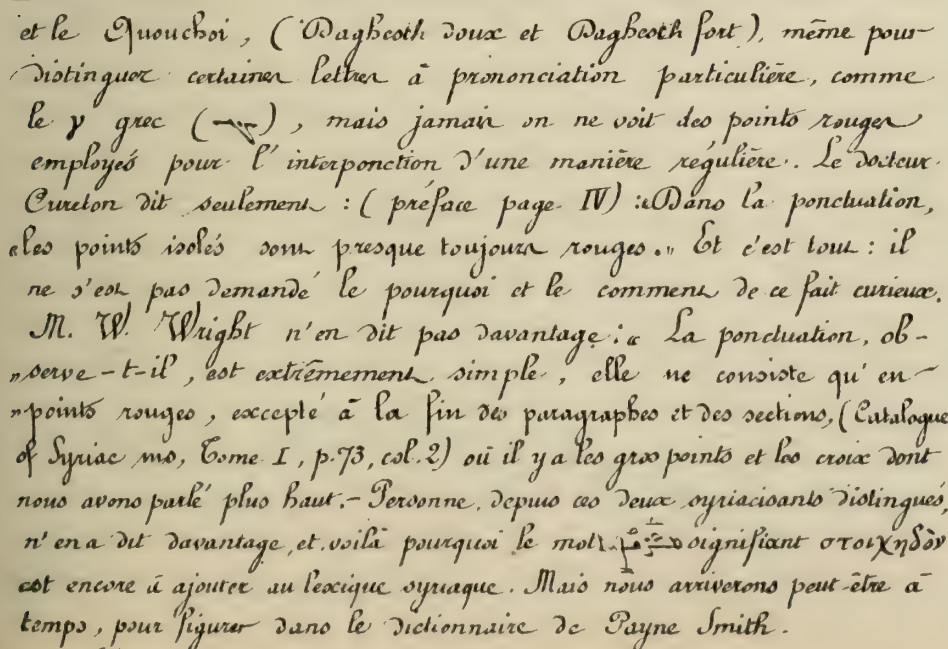 et le Quouchoi, (Daghesth doux et Daghesth fort), même pour
distinguer certaines lettres à prononciation particulière, comme
le γ grec (), mais jamais on ne voit des points rouges
employés pour l'interponction d'une manière régulière. Le docteur
Cureton dit seulement : (préface page IV) : « Dans la ponctuation,
« les points isolés sont presque toujours rouges. » Et c'est tout : il
ne s'est pas demandé le pourquoi et le comment de ce fait curieux.
M. W. Wright n'en dit pas davantage : « La ponctuation, ob-
» serve-t-il, est extrêmement simple, elle ne consiste qu'en
» points rouges, excepté à la fin des paragraphes et des sections, (Catalogue
of Syriac ms, Tome I, p. 73, col. 2) où il y a les gros points et les croix dont
nous avons parlé plus haut. - Personne, depuis ces deux syriacisants distingués,
n'en a dit davantage, et voilà pourquoi le mot signifiant στοιχηδὸν
est encore à ajouter au lexique syriaque. Mais nous arriverons peut-être à
temps, pour figurer dans le dictionnaire de Payne Smith.